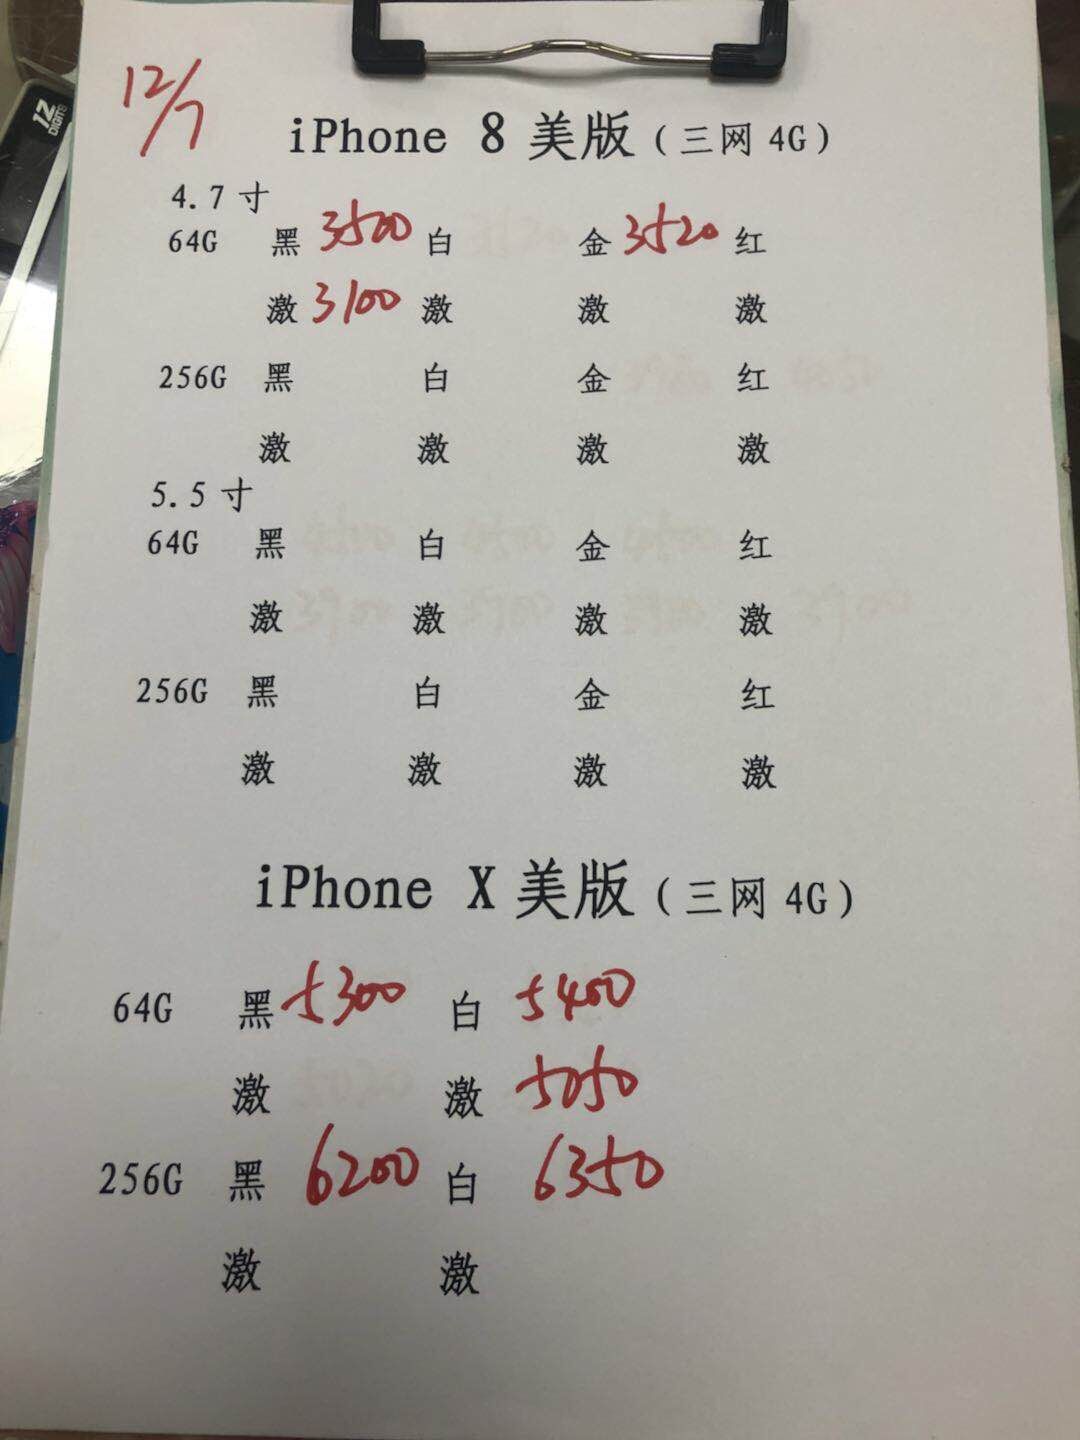 12/7
12 DIGITS
iPhone 8 美版 (三网 4G)
4.7 寸
64G 黑 3500 白 金 3520 红
激 3100 激 激 激
256G 黑 白 金 红
激 激 激 激
5.5 寸
64G 黑 白 金 红
激 激 激 激
256G 黑 白 金 红
激 激 激 激
iPhone X 美版 (三网 4G)
64G 黑 5300 白 5400
激 激 5050
256G 黑 6200 白 6350
激 激